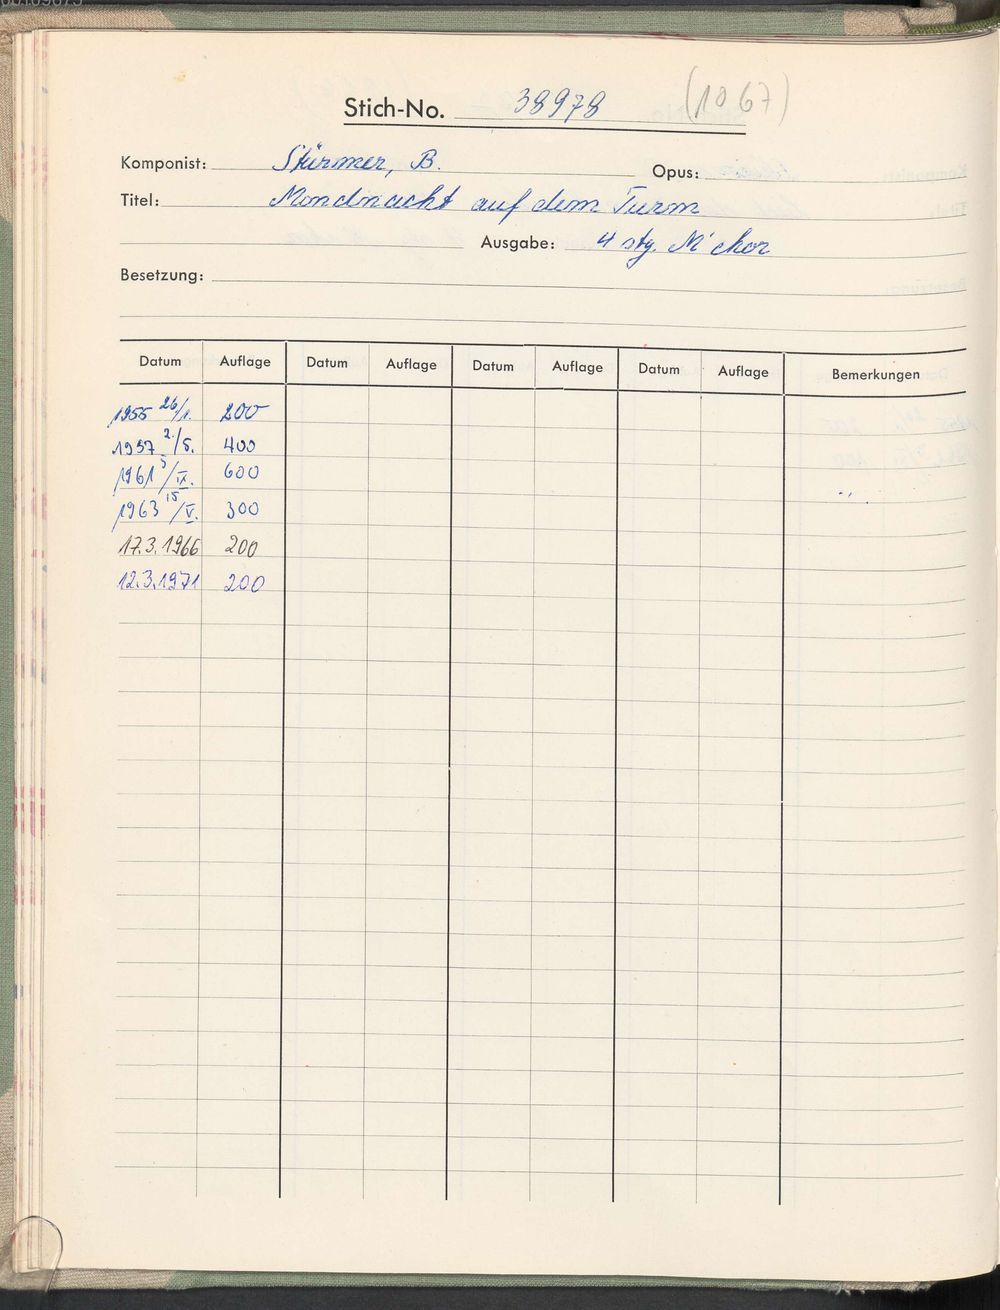 Stich-No. 38978 (1067)
Komponist: Stürmer, B. Opus:
Titel: Mondnacht auf dem Turm
Ausgabe: 4 stg. M'chor
Besetzung:
Datum Auflage Datum Auflage Datum Auflage Datum Auflage Bemerkungen
1955 26/1. 200
1957 2./5. 400
1961 5/IX. 600
1963 15/V. 300
17.3.1966 200
12.3.1971 200